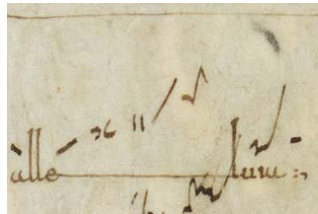 alle luia: